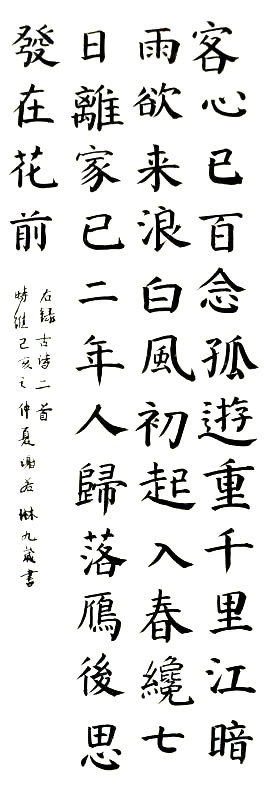 客心已百念孤遊重千里江暗
雨欲来浪白風初起入春纔七
日離家已二年人歸落鴈後思
發在花前
右録古诗二首
時維己亥之仲夏若琳九歲書